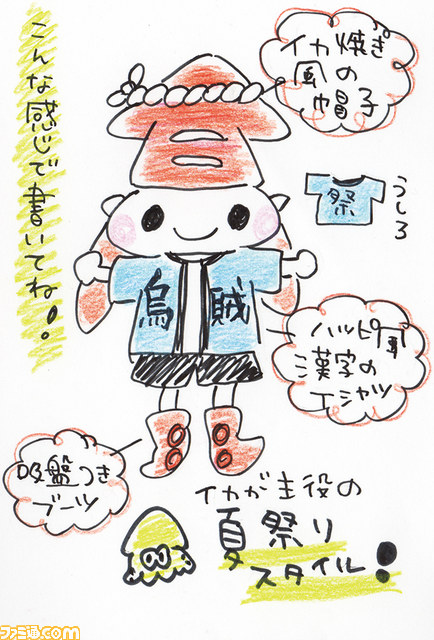 こんな感じで書いてね!
イカ焼き
風の
帽子
祭
うしろ
烏賊
ハッピ風
漢字の
Tシャツ
吸盤つき
ブーツ
イカが主役の
夏祭り
スタイル!
ファミ通.com